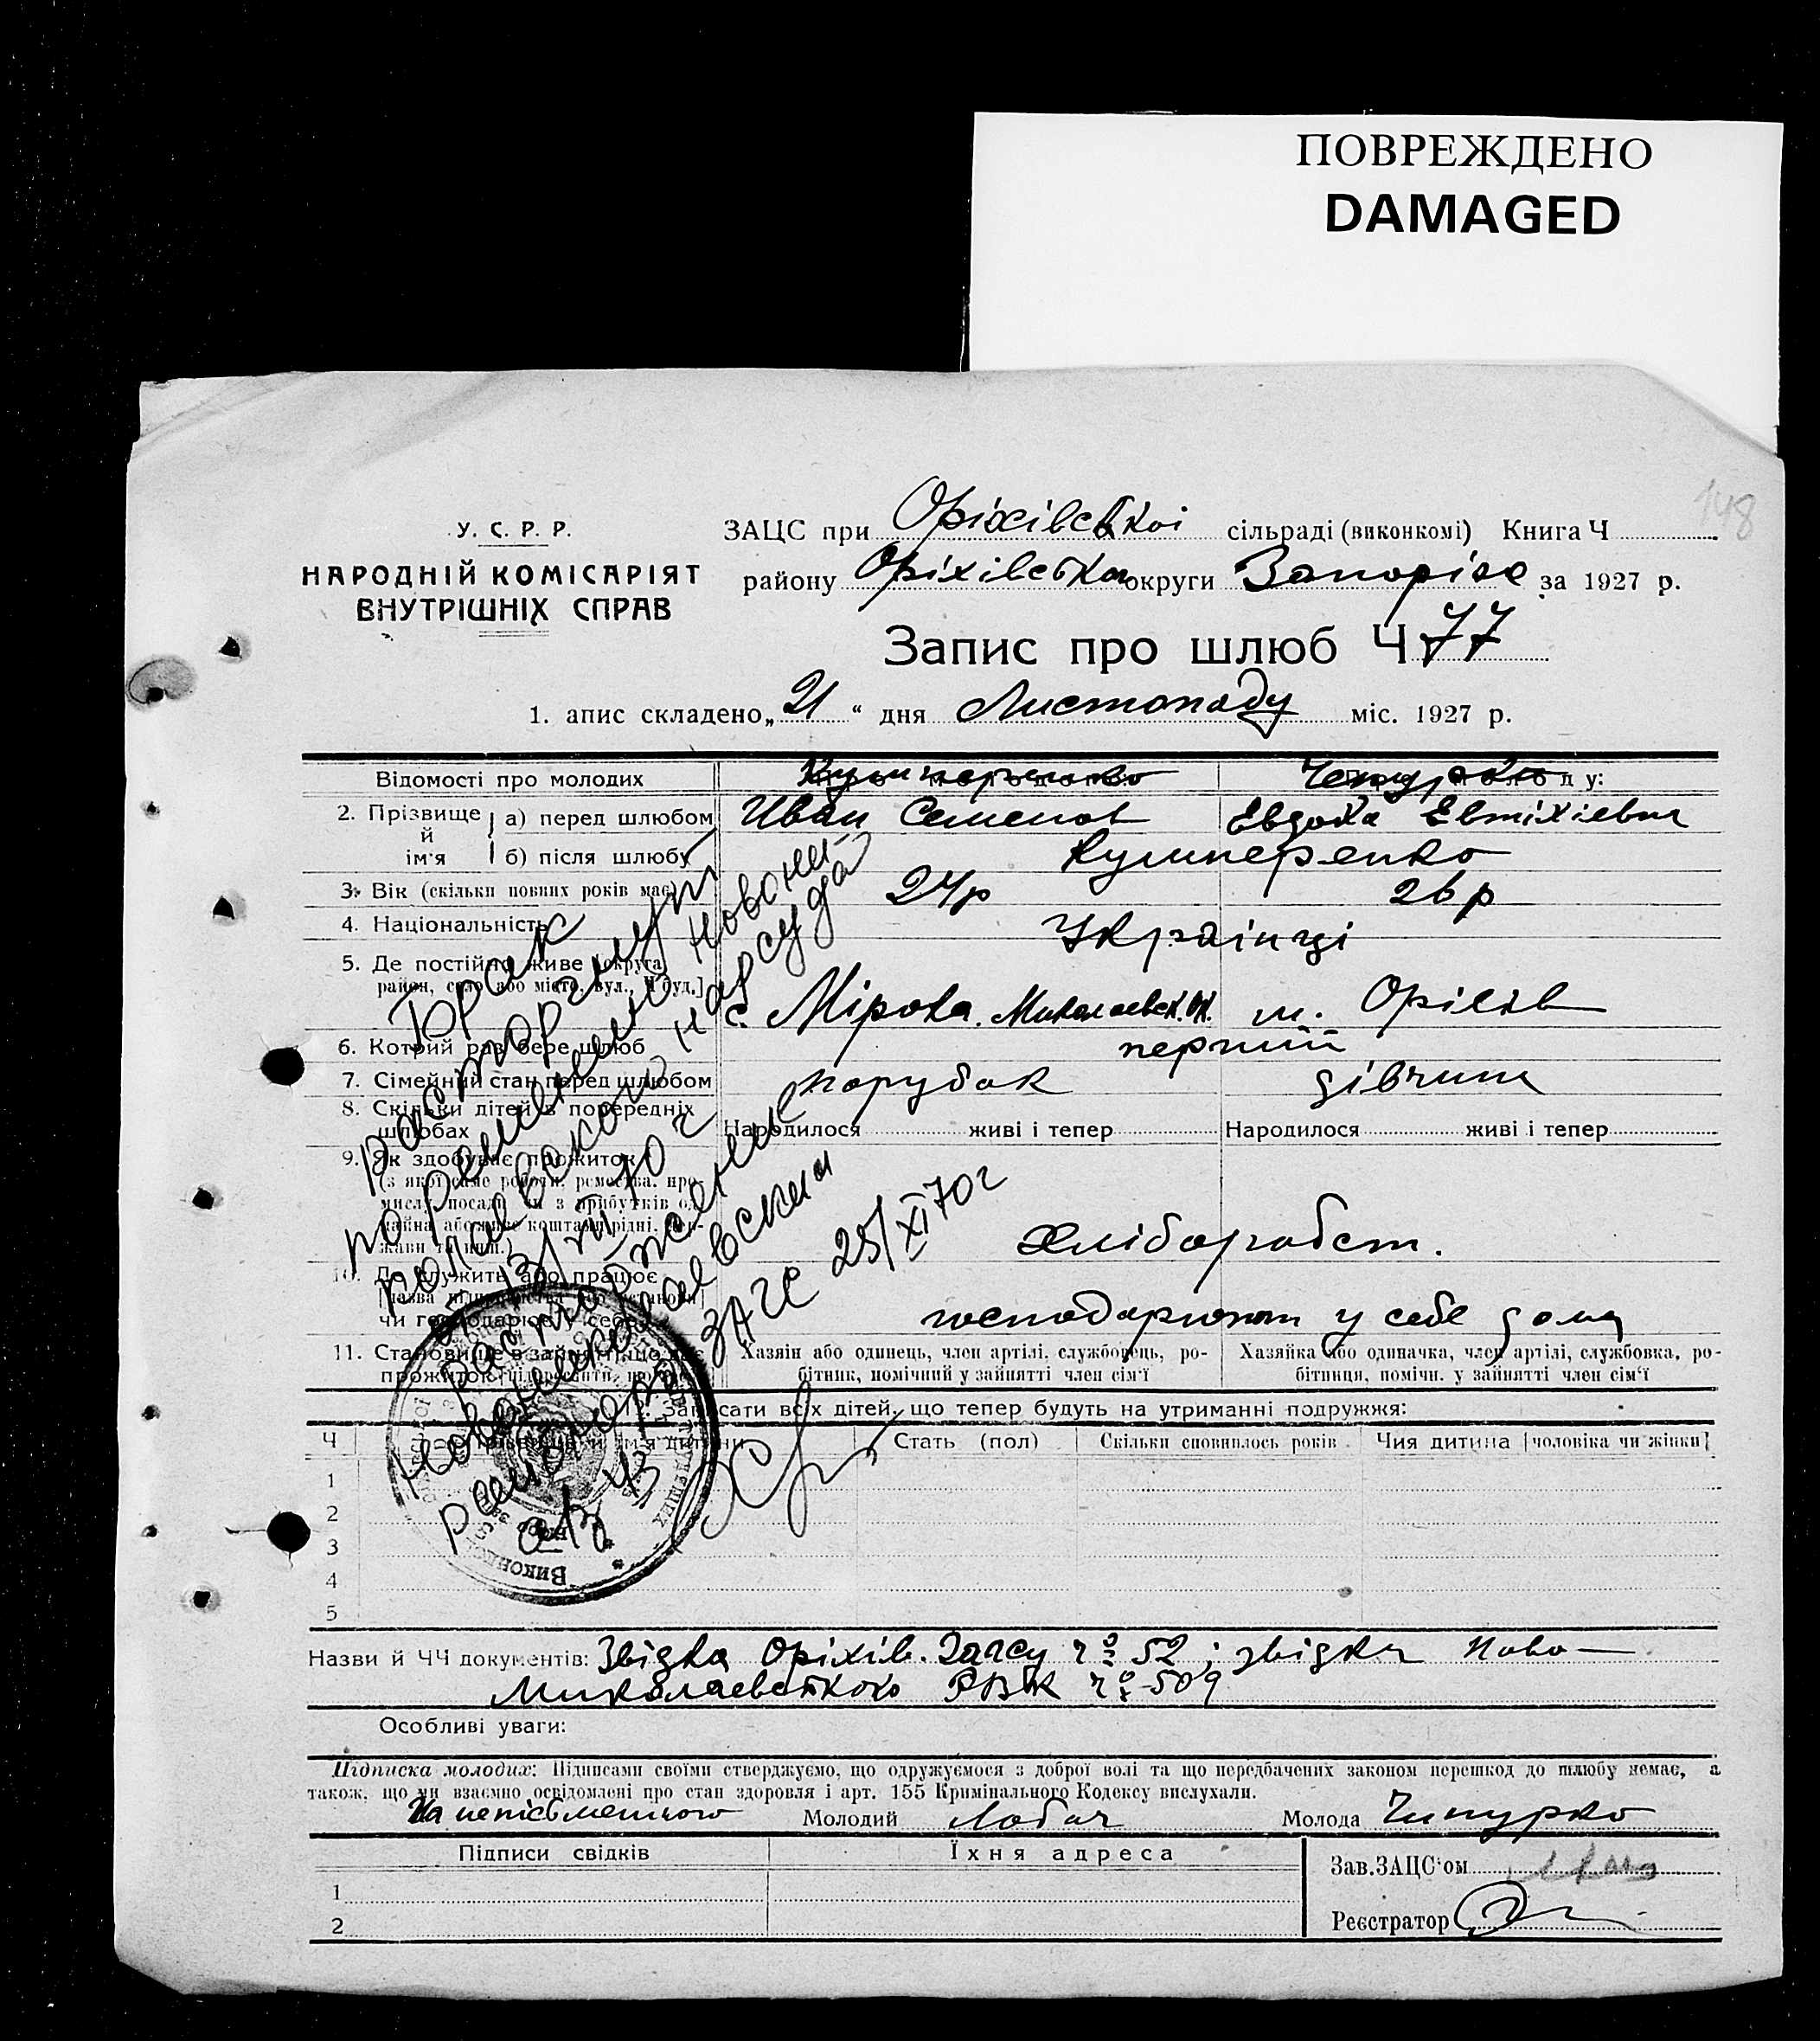 ПОВРЕЖДЕНО
DAMAGED
148
У. С. Р. Р.
НАРОДНІЙ КОМІСАРІЯТ
ВНУТРІШНІХ СПРАВ
ЗАЦС при Оріхівській сільраді (виконкомі) Книга Ч
району Оріхівськ округи Запоріж за 1927 р.
Запис про шлюб Ч 77
1. апис складено „21“ дня Листопаду міс. 1927 р.
Відомості про молодих Кушнеренко Чепурко ду:
2. Прізвище й ім'я а) перед шлюбом Иван Семенов Евдоха Евтіхіевна
б) після шлюбу Кушнеренко
3. Вік (скільки повних років має) 24р 26р
4. Національність Українці
5. Де постійно живе [округа,
район, село або місто, вул., Ч буд.] с. Мірова. Миколаевск. м. Оріхів
6. Котрий раз бере шлюб перший
7. Сімейний стан перед шлюбом парубок дівчина
8. Скільки дітей в попередніх
шлюбах Народилося живі і тепер Народилося живі і тепер
9. Як здобуває прожиток
(з якої саме роботи, ремества, про-
мислу, посади чи з прибутків од
майна або живе коштами рідні, дер-
жави та инш.) Хлібаробст.
10. Де служить або працює
чи господарює у себе господарюют у себе дома
11. Становище в занятті, що дає
прожиток
Хазяїн або одинець, член артілі, службовець, ро-
бітник, помічний у зайнятті член сім'ї
Хазяйка або одиначка, член артілі, службовка, ро-
бітниця, помічн. у зайнятті член сім'ї
Брак
расторгнут
по решению Новони-
колаевского нарсуда
от 13/VII 70 г
расположение
Новониколаевским
ЗАГС 25/XI 70г
а/з 43
Виконк
12. Записати всіх дітей, що тепер будуть на утриманні подружжя:
Ч Прізвище й ім'я дитини Стать (пол) Скільки сповнилось років Чия дитина [чоловіка чи жінки]
1
2
3
4
5
Назви й ЧЧ документів: Звідка Оріхів. Загсу ч° 52; звідка Ново-
Миколаевського РВК ч° 509
Особливі уваги:
Підписка молодих: Підписами своїми стверджуємо, що одружуємося з доброї волі та що передбачених законом перешкод до шлюбу немає, а
також, що ми взаємно освідомлені про стан здоровля і арт. 155 Кримінального Кодексу вислухали.
За неписьменного Молодий Лобач Молода Чипурко
Підписи свідків Їхня адреса Зав.ЗАЦС'ом
1
2 Реєстратор